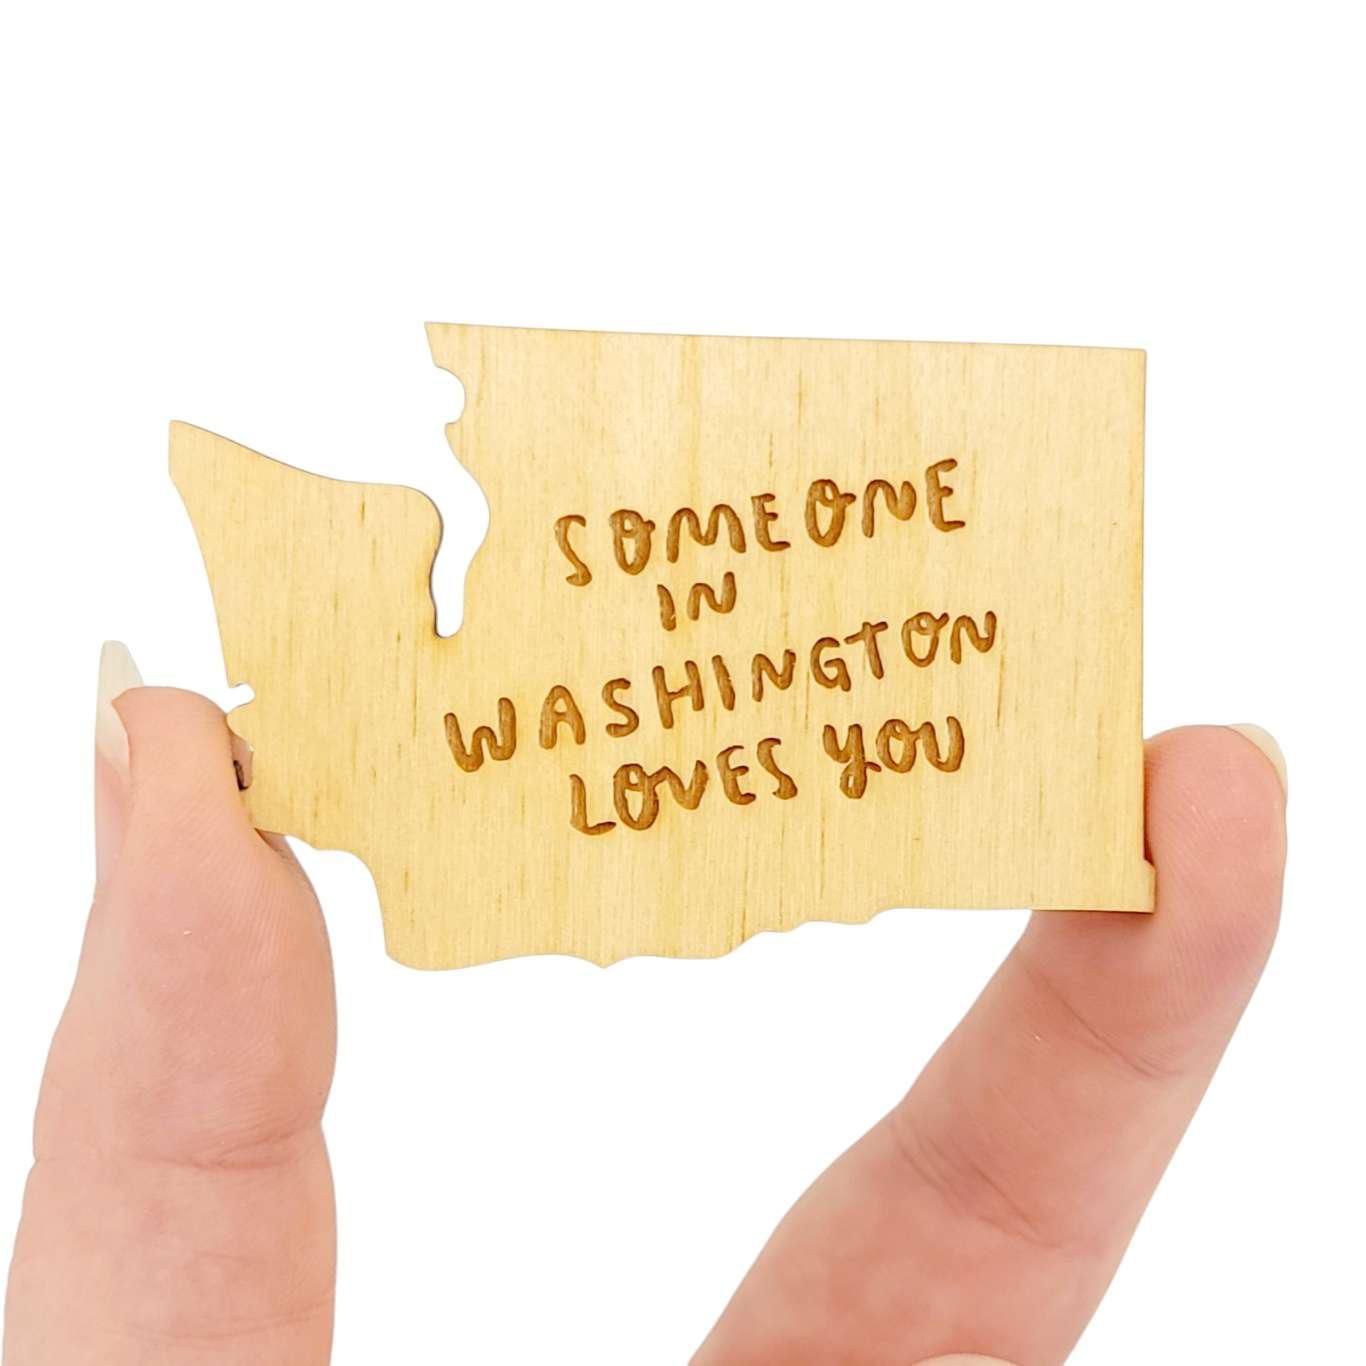 SOMEONE
IN
WASHINGTON
LOVES YOU